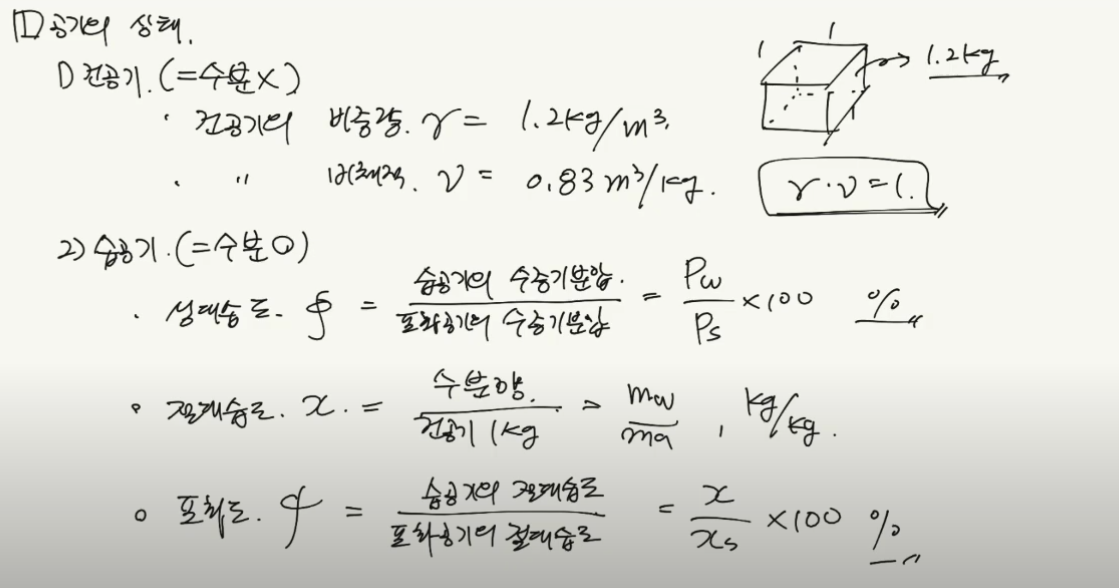 1 공기의 상태.
1) 건공기.(=수분X)
· 건공기의 비중량. γ = 1.2kg/m³.
· 〃 비체적. ν = 0.83 m³/kg.
1 1 1 → 1.2kg
γ·ν=1.
2) 습공기.(=수분O)
· 상대습도. φ = 습공기의 수증기분압. / 포화공기의 수증기분압 = Pw / Ps ×100 %
· 절대습도. x. = 수분양. / 건공기 1kg = mw / ma , kg/kg.
o 포화도. ψ = 습공기의 절대습도 / 포화공기의 절대습도 = x / xs ×100 %